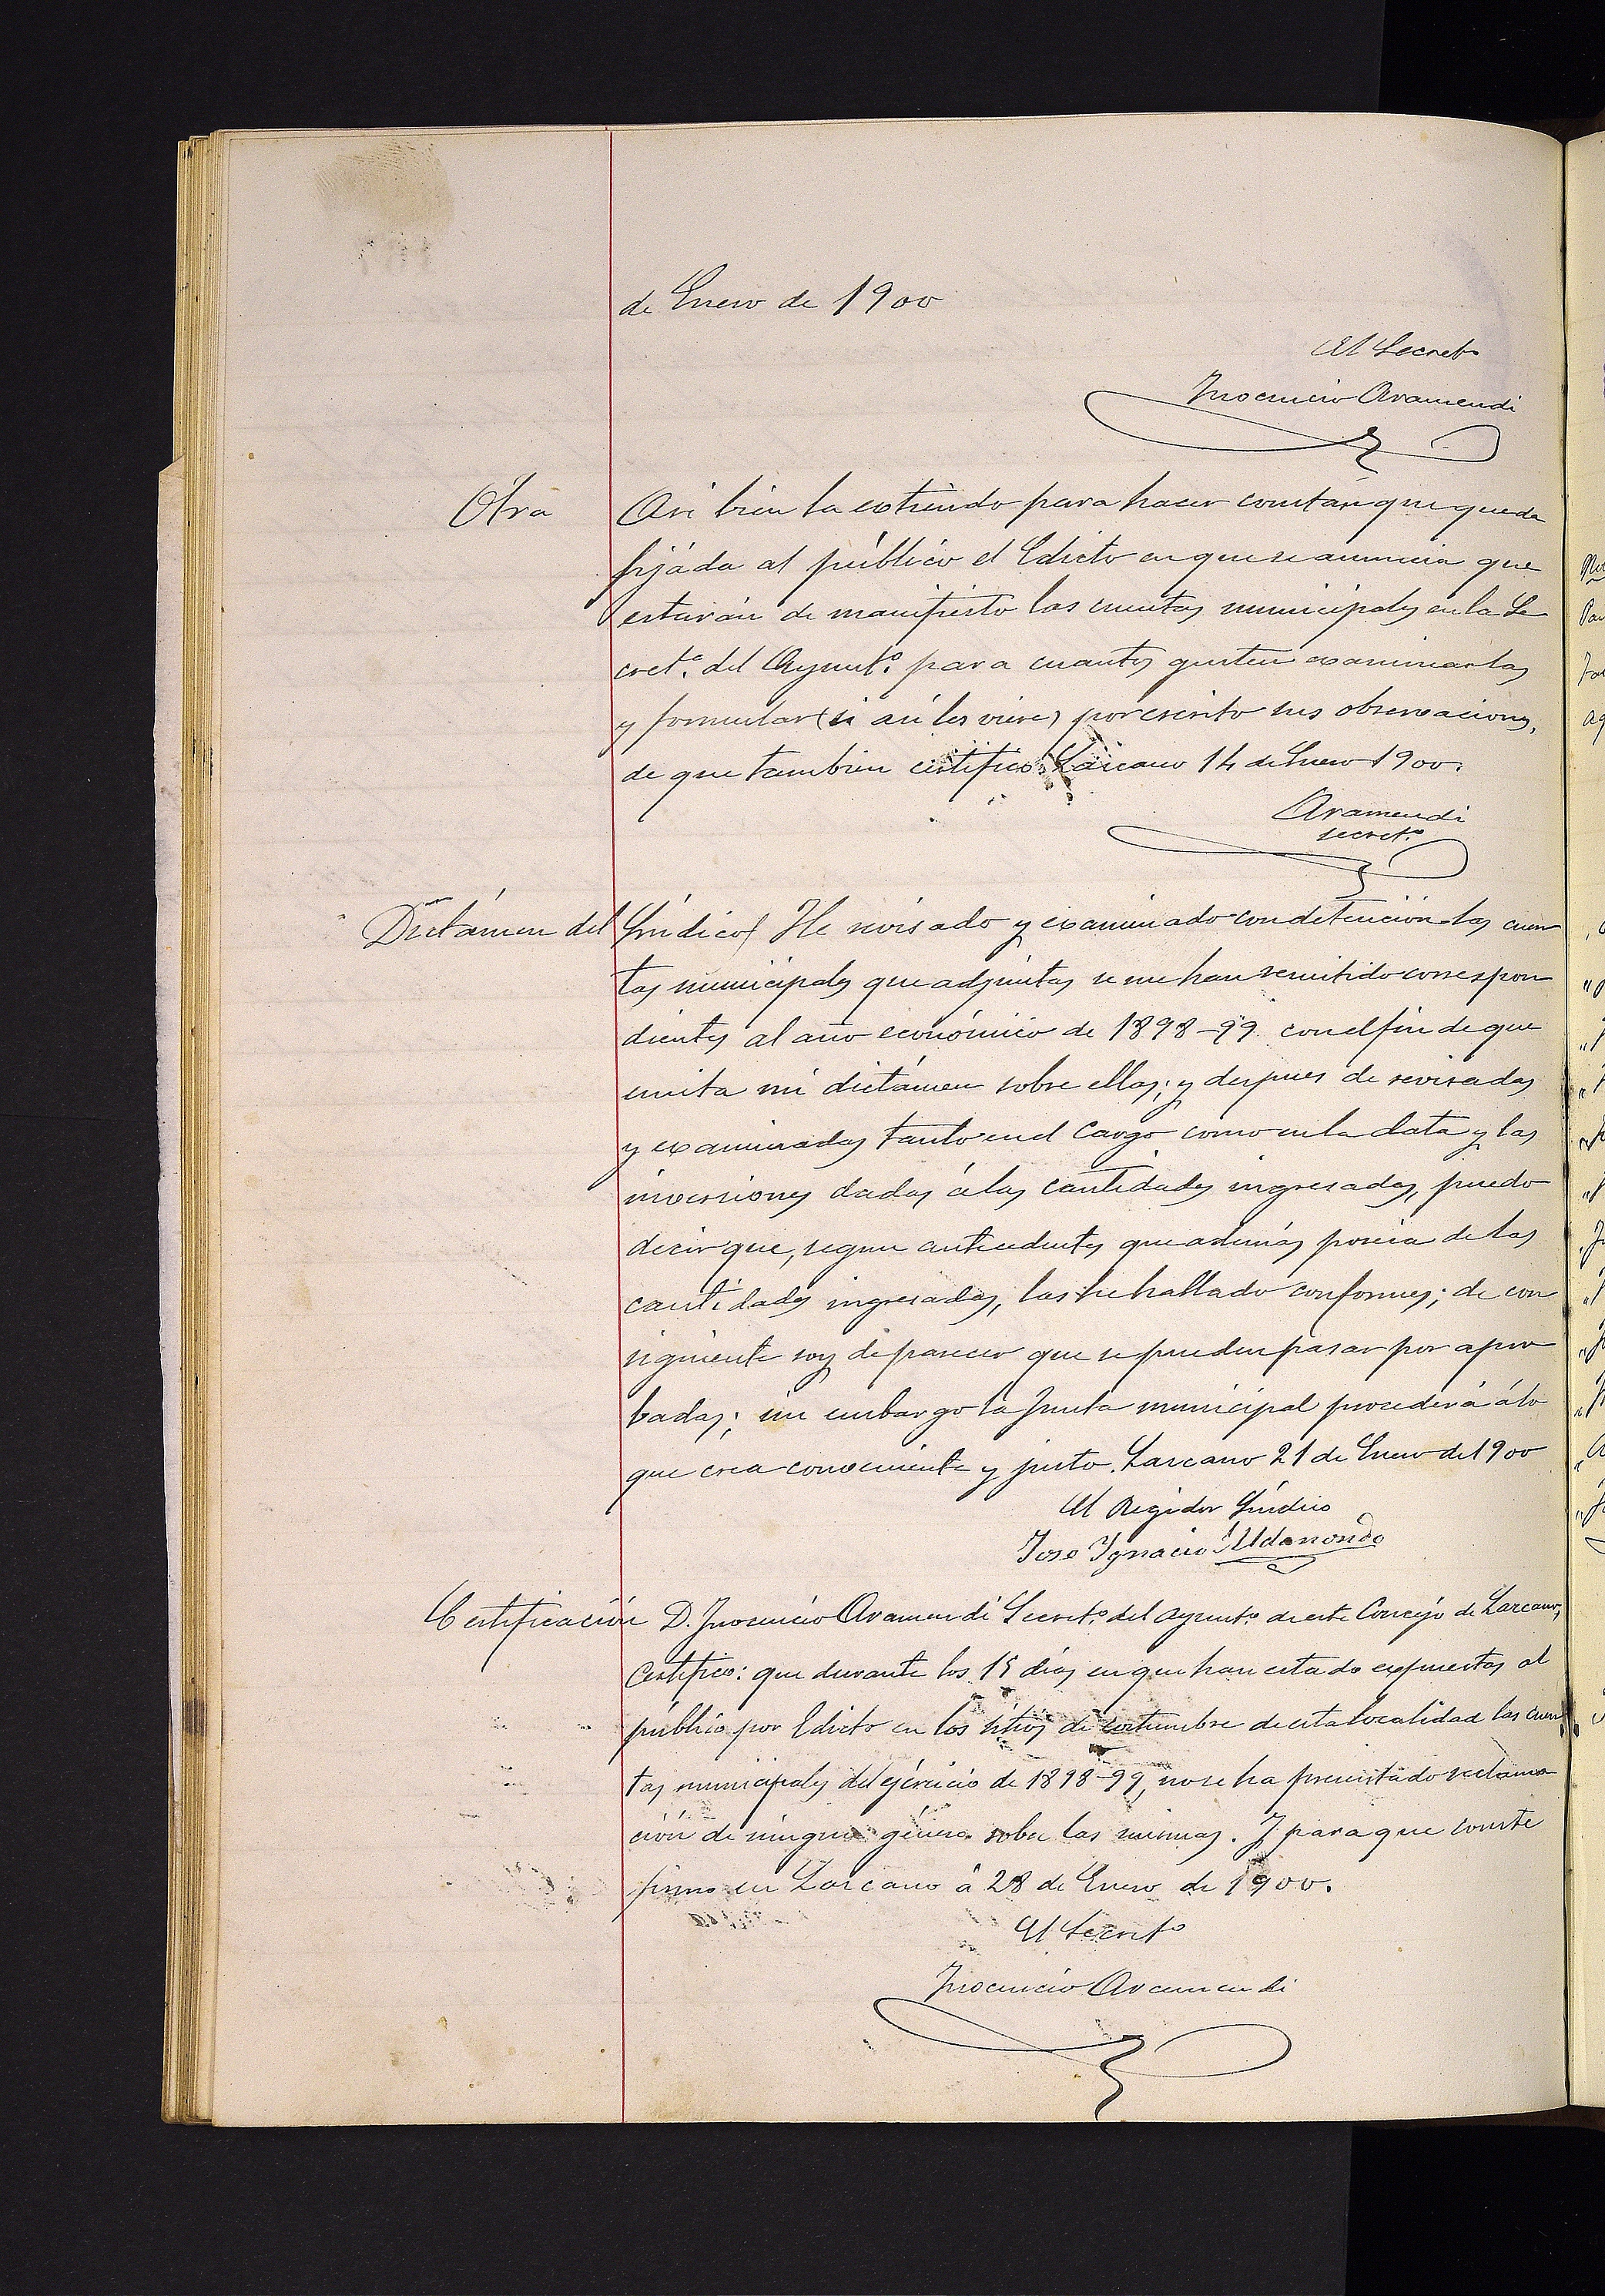 de Enero de 1900
El Secretº
Inocencio Aramendi
Otra
Asi bien la extiendo para hacer constar que queda
fijáda al público el Edicto en que se anuncia que
estarán de manifiesto las cuentas municipales en la Se
cret.ª del Ayunt.º para cuantos gusten examinarlas
y formular (si asi les viere) por escrito sus observaciones,
de que tambien certifico. Lazcano 14 de Enero 1900.
Aramendi
secret.º
Dictámen del Síndico) He revisado y examinado con detención las cuen
tas municipales que adjuntas se me han remitido correspon
dientes al año económico de 1898-99 con el fin de que
emita mi dictámen sobre ellas; y despues de revisadas
y examinadas tanto en el Cargo como en la data y las
inversiones dadas á las cantidades ingresadas, puedo
decir que, segun antecedentes que además poseia de las
cantidades ingresadas, las he hallado conformes; de con
siguiente soy de parecer que se pueden pasar por apro
badas; sin embargo la Junta municipal procederá á lo
que crea conveniente y justo. Lazcano 21 de Enero de 1900
El Regidor Síndico
Jose Ygnacio Aldanondo
Certificación
D. Inocencio Aramendi Secret.º del Ayunt.º de este Concejo de Lazcano,
Certifico: que durante los 15 dias en que han estado expuestas al
público por Edicto en los sitios de costumbre de esta localidad las cuen
tas municipales del ejércicio de 1898-99, no se ha presentado reclama
ción de ningun género sobre las mismas. Y para que conste
firmo en Lazcano á 28 de Enero de 1900.
El Secretº
Inocencio Aramendi